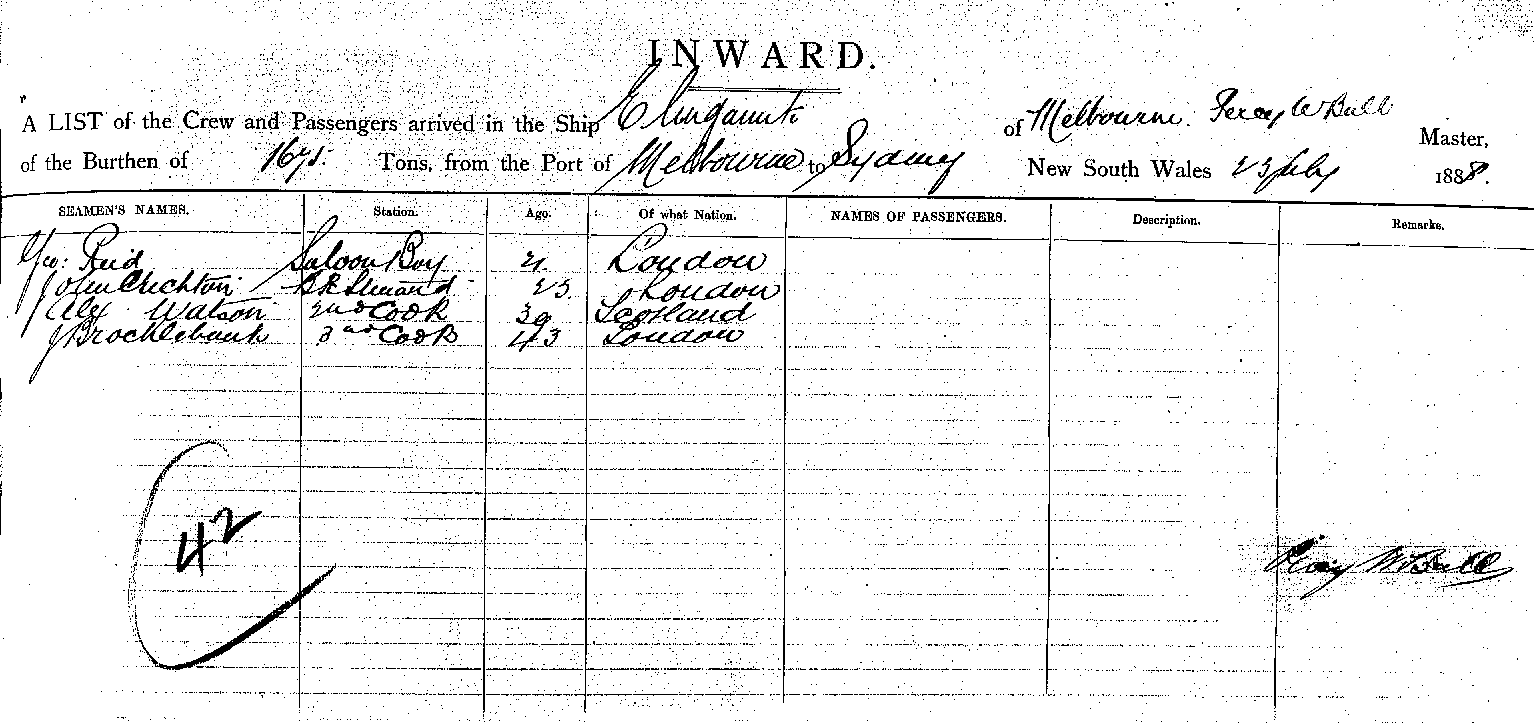 INWARD.
A LIST of the Crew and Passengers arrived in the Ship of Melbourne. Percy W Bull Master,
of the Burthen of 1675. Tons, from the Port of Melbourne to Sydney New South Wales 23 1888.
SEAMEN'S NAMES. Station. Age. Of what Nation. NAMES OF PASSENGERS. Description. Remarks.
Geo: Reid Saloon Boy 21 London
John Crichton Steward 23 London
Alex Watson 2nd Cook 39 Scotland
J Brocklebank 3rd Cook 43 London
42
Percy W Bull